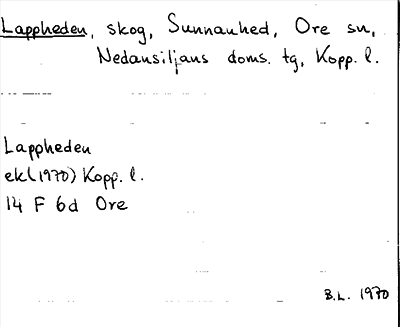 Lappheden, skog, Sunnanhed, Ore sn,
Nedansiljans doms. tg, Kopp. l.
Lappheden
ek(1970) Kopp. l.
14 F 6d Ore
B.L. 1970